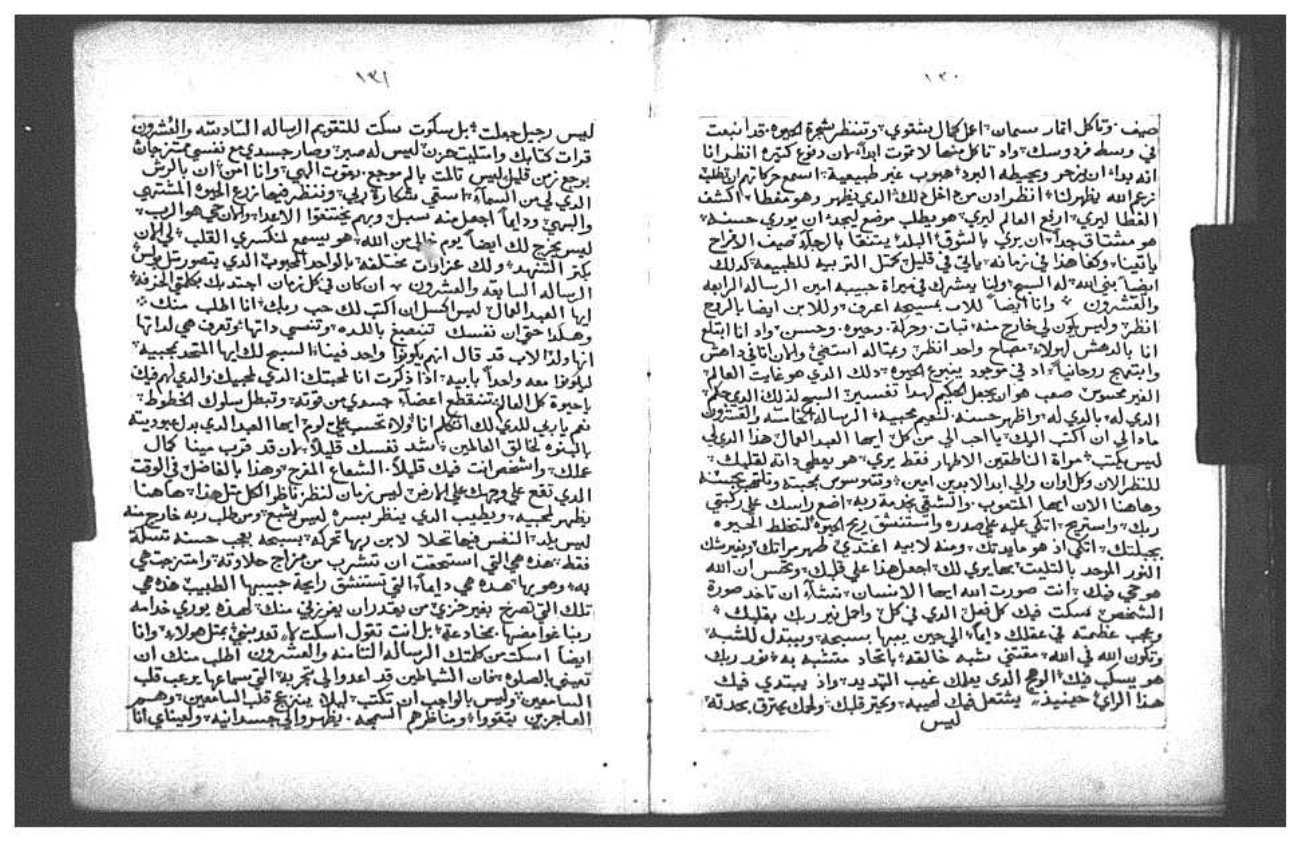 ١٣٠
صيف وتاكل اتمار سمان اعل كمال بتقوي وتنتظر شجرة الحيوه قد انبعت
في وسط فردوسك واد تاكل منها لا تموت ابداً
انه بداء ان يزهر ويحيطه البرد هبوب غير طبيعية اسمع
نزع الله يظهر لنا انظر ادن من داخل ذلك الدي يظهر وهو مغطا اكشف
الغطا ليري ارفع العالم ليري هو يطلب موضع ليجد ان يوري حسنه
هو مشتاق جداً ان يري بالشوق صيف الافراح
ياتينا وكفا هذا في زمانه ياتي في قليل التربيه للطبيعه كدلك
ايضاً بني الله له السبح ولنا حبيبه امين الرساله الرابعه
والعشرون وانا ايضاً للاب بمسيحه اعرف وللابن ايضا بالروح
انظر وليس يكون لي خارج منه تبات وحركة وحيوه وحسن واد انا ابتلع
انا بالدهش لهولاء مصباح واحد انظر
وابتهج روحانياً اد في موجود ينبوع الحيوه دلك الدي هو غايت العالم
الغير محسوس صعب هو ان يجعل الحكيم لهدا تفسير السبح لدلك الدي
الدي له بالدي له واظهر حسنه لنعيم محبيه الرساله الخامسه والعشرون
مادا لي ان اكتب اليك يا احب الي من كل ايها العبد العمال هذا الدي لي
ليس يكتب مراة الناطقين الاطهار فقط يري هو يعطي داته لقلبك
للنظر الان وكل اوان والي ابد الابدين امين
وهاهنا الان ايها المتعوب والشقي بخدمة ربه اضع راسك علي ركبتي
ربك واستريح اتكي عليه علي صدره واستنشق ريح الحيوه لتختلط الحيوه
بجبلتك اتكي اذ هو مايدتك ومنه لابيه اعتدي طهر مراتك
النور الموحد بالتليت بها يري لك اجعل هذا علي قلبك وتحس ان الله
هو حي فيك انت صورت الله ايها الانسان نشاء ان تاخد صورة
الشخص سكت فيك كل فعل الدي في كل واحل نير ربك بقلبك
وعجب عظمته في عقلك دايماً الي حين يبها بسبحه ويبتدل للشبه
وتكون الله في الله مقتني شبه خالقه باتحاد متشبه به نور ربك
هو يسكب فيك الوهج الدي يعلك غيب التديد واذ يبتدي فيك
هذا الراي حينيذ يشتعل فيك لهيبه ويحتر قلبك ولحمك يحترق بحدته
ليس
١٣١
ليس رجيل جعلت بل سكوت سكت للتقويم الرساله السادسه والعشرون
قرات كتابك وامتليت حزن ليس له صبر وصار جسدي مع نفسي ممتزجان
بوجع زمن قليل ليس تالمت بالم موجع بموت الهي وانا امن ان بالرش
الدي لي من السماء استقي شكارة ربي وننظر فيها زرع الحيوه المشتهي
والبهي ودايماً اجعل منه سبيل وبهم يختنقوا الاعدا والان حي هو الرب
ليس يخرج لك ايضاً يوم خالي من الله هو يسمع لمنكسري القلب
يكتر التنهد ولك عزاوات مختلفه بالواحد المحبوب الدي يتصور
الرساله السابعه والعشرون ان كان في كل زمان اجتدبك بكلمتي
ايها العبد العمال ليس اكسل ان اكتب لك حب ربك انا اطلب منك
وهكدا حتي ان نفسك تنصبغ باللده وتنسي داتها وتعرف هي لداتها
انها ولد الاب قد قال انهم يكونوا واحد فينا السبح لك ايها المتحد بمحبيه
ليكونوا معه واحداً بابيه اذا ذكرت انا لمحبتك الدي لمحبيك والدي لهم فيك
يا حيوة كل العالم تتقطع اعضاء جسدي من قوته وتبطل سلوك الخطوط
نعم يا ربي للدي لك اتكلم انا ولا تحسب علي لوم ايها العبد الدي بدل عبوديته
بالبنوه لخالق العالمين اشد نفسك قليلاً لان قد قرب مينا كمال
عملك واشخص انت فيك قليلاً الشعاع المفرح وهذا بالفاضل في الوقت
الدي تقع علي وجهك علي الارض ليس زمان لنظر ناظر الكل مثل هذا هاهنا
يظهر لمحبيه ويطيب الدي ينظر بسره ليس يشبع ومن طلب ربه خارج منه
ليس يلد النفس فيها تحلا لابن ربها تحركه يسبحه بعجب حسنه
فقط هذه هي التي استحقت ان تتشرب من مزاج حلاوته وامتزجت هي
به وهو بها هده هي دايماً التي تستنشق رايحة حبيبها الطبيب هذه هي
تلك التي تصرخ بغير خزي من يقدر ان يفرزني منك لهذه يوري خدامه
ربنا غوامضها بخادعة بل انت تقول اسكت لا تعدبني بمتل هولاء وانا
ايضاً اسكت من كلمتك الرساله التامنه والعشرون اطلب منك ان
تعيني بالصلوه فان الشياطين قد اعدوا لي تجربه التي سماعها يرعب قلب
السامعين وليس بالواجب ان تكتب ليلا ينزعج قلب السامعين وهم
العاجزين يتقووا ومناظرهم السمجه يظهروا لي جسدانيه ولعيناي انا